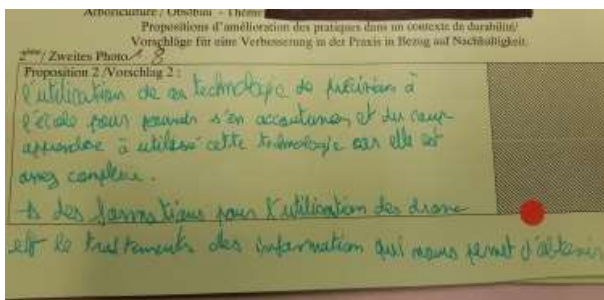 Arboriculture / Obstbau - Thème
Propositions d'amélioration des pratiques dans un contexte de durabilité/
Vorschläge für eine Verbesserung in der Praxis in Bezug auf Nachhaltigkeit
2ème / Zweites Photo 1.8
Proposition 2 /Vorschlag 2 :
l'utilisation de la technologie de précision à
l'école pour pouvoir s'en accoutumer et du coup
apprendre à utiliser cette technologie car elle est
assez complexe.
des formations pour l'utilisation des drone
et le traitements des information qui nous permet d'obtenir